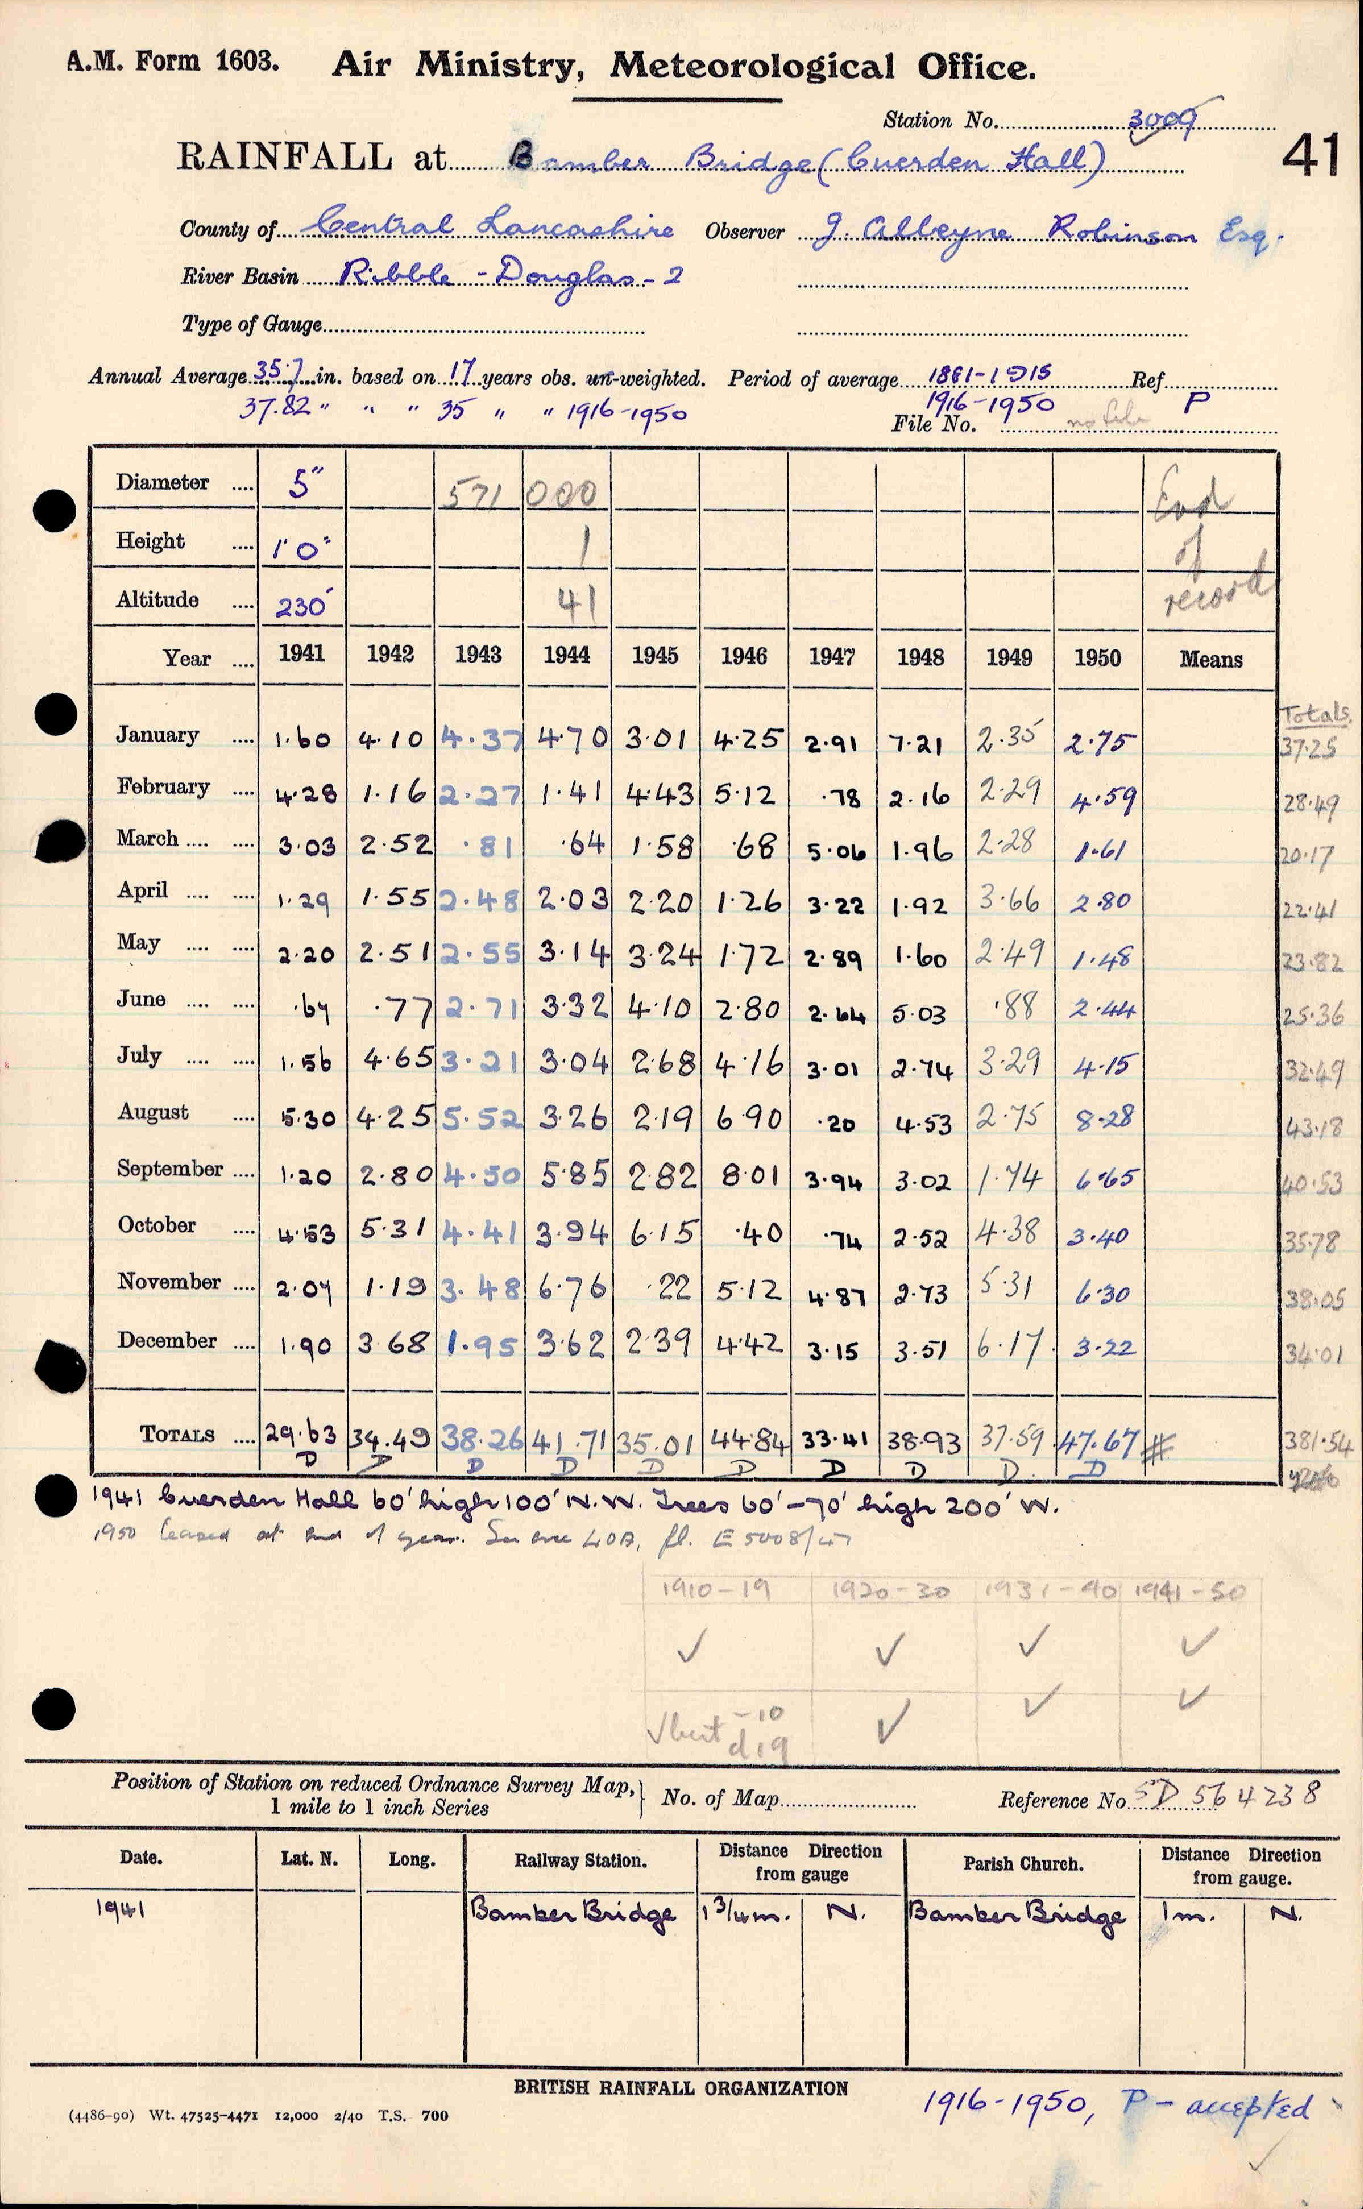 A.M. Form 1603. Air Ministry, Meteorological Office.
Station No. 3009
41
RAINFALL at Bamber Bridge (Cuerden Hall)
County of Central Lancashire Observer J. Alleyne Robinson Esq.
River Basin Ribble - Douglas - 2
Type of Gauge
Annual Average 35.7 in. based on 17 years obs. un-weighted. Period of average 1881-1915 Ref P
37.82 " " " 35 " " 1916-1950 1916-1950
File No. no file
Diameter .... 5" 571 000 End
Height .... 1'0" 1 of
Altitude .... 230' 41 record
Year .... 1941 1942 1943 1944 1945 1946 1947 1948 1949 1950 Means
Totals
January .... 1.60 4.10 4.37 4.70 3.01 4.25 2.91 7.21 2.35 2.75 37.25
February .... 4.28 1.16 2.27 1.41 4.43 5.12 .78 2.16 2.29 4.59 28.49
March .... .... 3.03 2.52 .81 .64 1.58 .68 5.06 1.96 2.28 1.61 20.17
April .... .... 1.29 1.55 2.48 2.03 2.20 1.26 3.22 1.92 3.66 2.80 22.41
May .... .... 2.20 2.51 2.55 3.14 3.24 1.72 2.89 1.60 2.49 1.48 23.82
June .... .... .67 .77 2.71 3.32 4.10 2.80 2.64 5.03 .88 2.44 25.36
July .... .... 1.56 4.65 3.21 3.04 2.68 4.16 3.01 2.74 3.29 4.15 32.49
August .... 5.30 4.25 5.52 3.26 2.19 6.90 .20 4.53 2.75 8.28 43.18
September .... 1.20 2.80 4.50 5.85 2.82 8.01 3.94 3.02 1.74 6.65 40.53
October .... 4.53 5.31 4.41 3.94 6.15 .40 .74 2.52 4.38 3.40 35.78
November .... 2.07 1.19 3.48 6.76 .22 5.12 4.87 2.73 5.31 6.30 38.05
December .... 1.90 3.68 1.95 3.62 2.39 4.42 3.15 3.51 6.17 3.22 34.01
TOTALS .... 29.63 34.49 38.26 41.71 35.01 44.84 33.41 38.93 37.59 47.67 # 381.54
D D D D D D D D D D
1941 Cuerden Hall 60' high 100' N.W. Trees 60'-70' high 200' W.
1950 Ceased at end of year. E 5008/47
1910-19 1920-30 1931-40 1941-50
✓ ✓ ✓ ✓
✓ but -10 d19 ✓ ✓ ✓
Position of Station on reduced Ordnance Survey Map, 1 mile to 1 inch Series } No. of Map Reference No. SD 564238
Date. Lat. N. Long. Railway Station. Distance Direction from gauge Parish Church. Distance Direction from gauge.
1941 Bamber Bridge 1 3/4 m. N. Bamber Bridge 1m. N.
BRITISH RAINFALL ORGANIZATION
1916-1950, P - accepted
(4486-90) Wt. 47525-4471 12,000 2/40 T.S. 700
✓